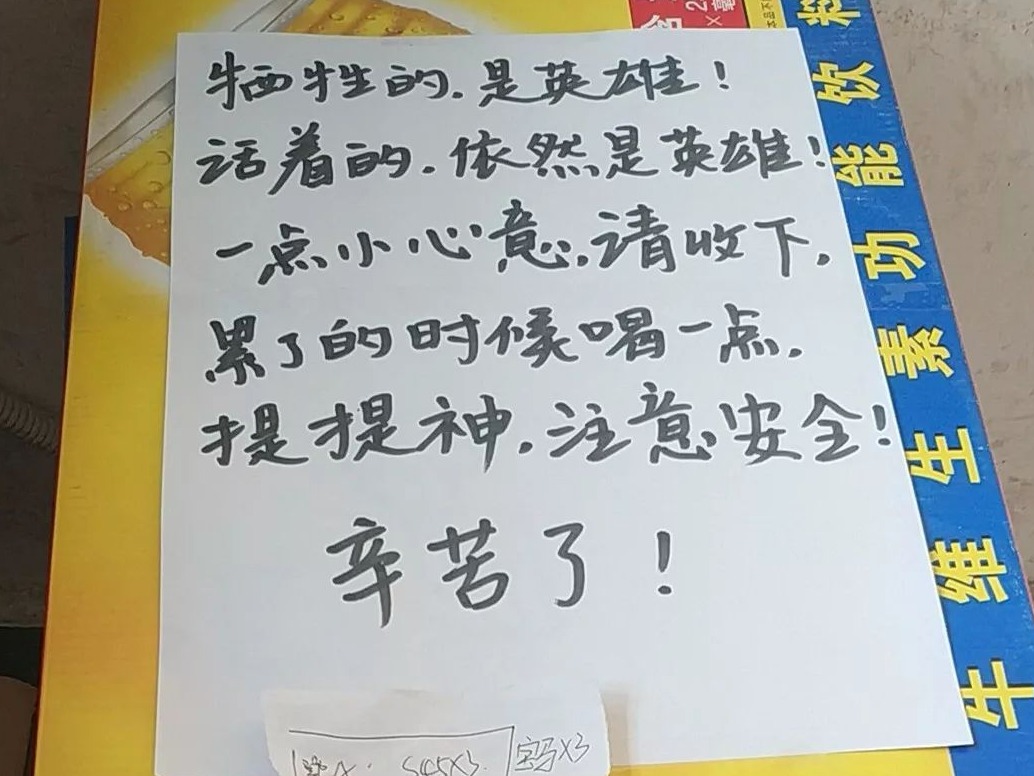 牺牲的.是英雄!
活着的.依然是英雄!
一点小心意.请收下.
累了的时候喝一点.
提提神.注意安全!
辛苦了!
牛维生素功能饮料